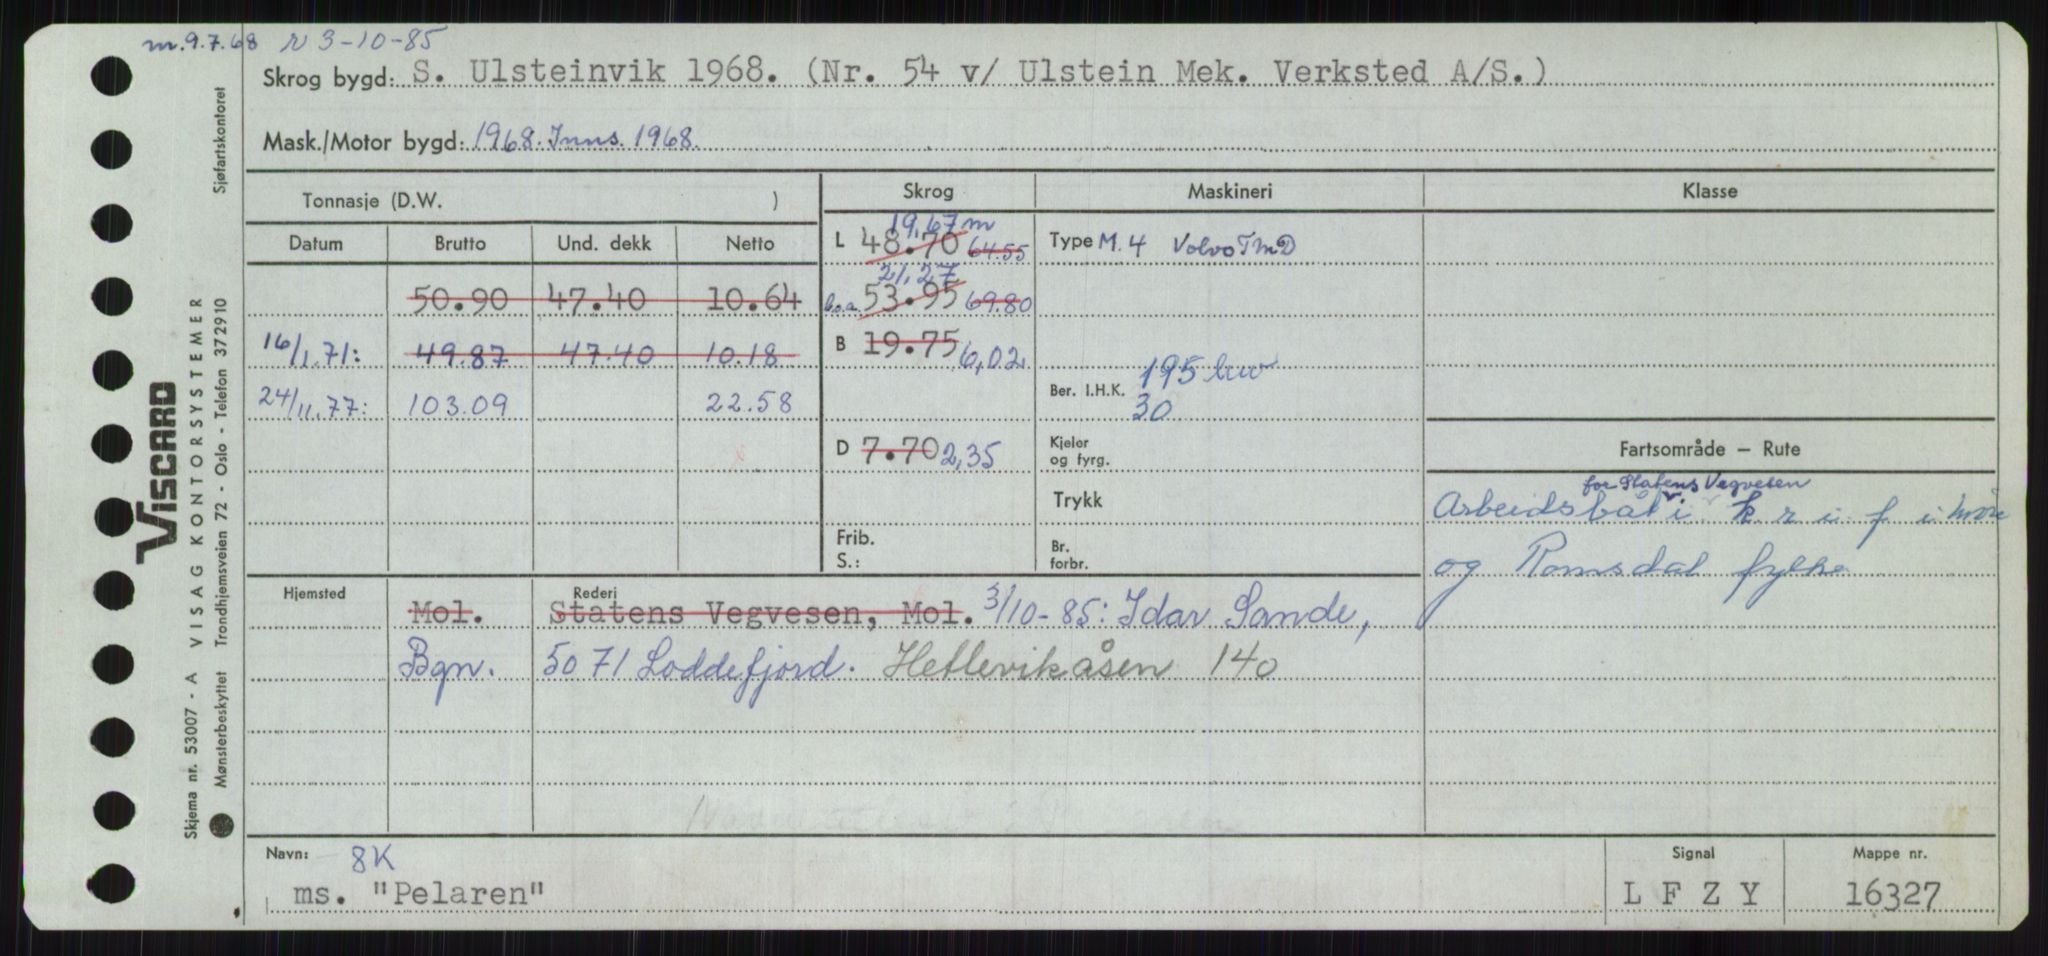 m. 9.7.68 r 3-10-85
Skrog bygd: S. Ulsteinvik 1968. (Nr. 54 v/ Ulstein Mek. Verksted A/S.)
Mask./Motor bygd: 1968. Inns. 1968.
Tonnasje (D.W. ) Skrog Maskineri Klasse
Datum Brutto Und. dekk Netto
19,67 m
L 48.70 64.55 Type M. 4 Volvo TMD
21,27
50.90 47.40 10.64 l.o.a. 53.95 69.80
16/1.71: 49.87 47.40 10.18 B 19.75 6,02
195 kw
24/11.77: 103.09 22.58 Ber. I.H.K. 30
D 7.70 2,35 Kjeler og fyrg. Fartsområde — Rute
for Statens Vegvesen
Trykk Arbeidsbåt i k r i f i Møre
Frib. S.: Br. forbr. og Romsdal fylke
Hjemsted Rederi
Mol. Statens Vegvesen, Mol. 3/10-85: Idar Sande,
Bgn. 5071 Loddefjord. Hetlevikåsen 140
Navn: 8K Signal Mappe nr.
ms. "Pelaren" L F Z Y 16327
VISCARD
Skjema nr. 53007 - A VISAG KONTORSYSTEMER
Mønsterbeskyttet Trondhjemsveien 72 - Oslo - Telefon 372910 Sjøfartskontoret